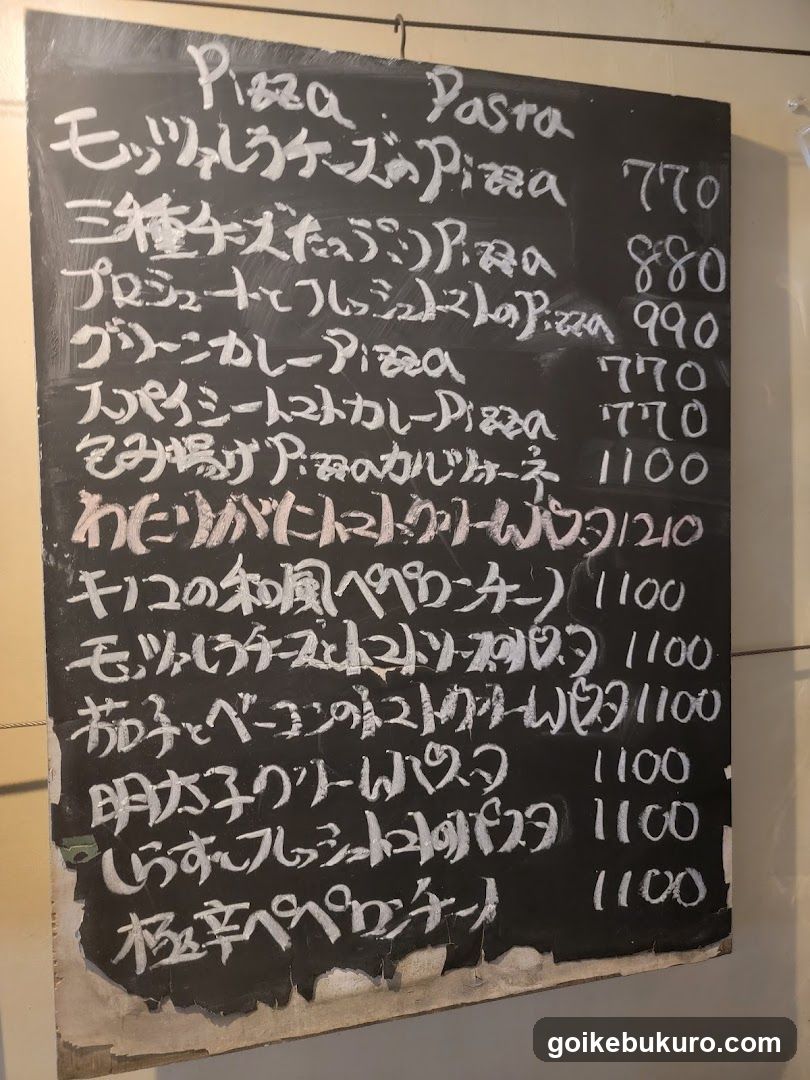 Pizza . Pasta
モッツァレラチーズのPizza 770
三種チーズたっぷりPizza 880
プロシュートとフレッシュトマトのPizza 990
グリーンカレーPizza 770
スパイシートマトカレーPizza 770
包み揚げPizzaカルツォーネ 1100
わたりがにトマトクリームパスタ 1210
キノコの和風ペペロンチーノ 1100
モッツァレラチーズとトマトソースのパスタ 1100
茄子とベーコンのトマトクリームパスタ 1100
明太子クリームパスタ 1100
しらすとフレッシュトマトのパスタ 1100
極辛ペペロンチーノ 1100
goikebukuro.com